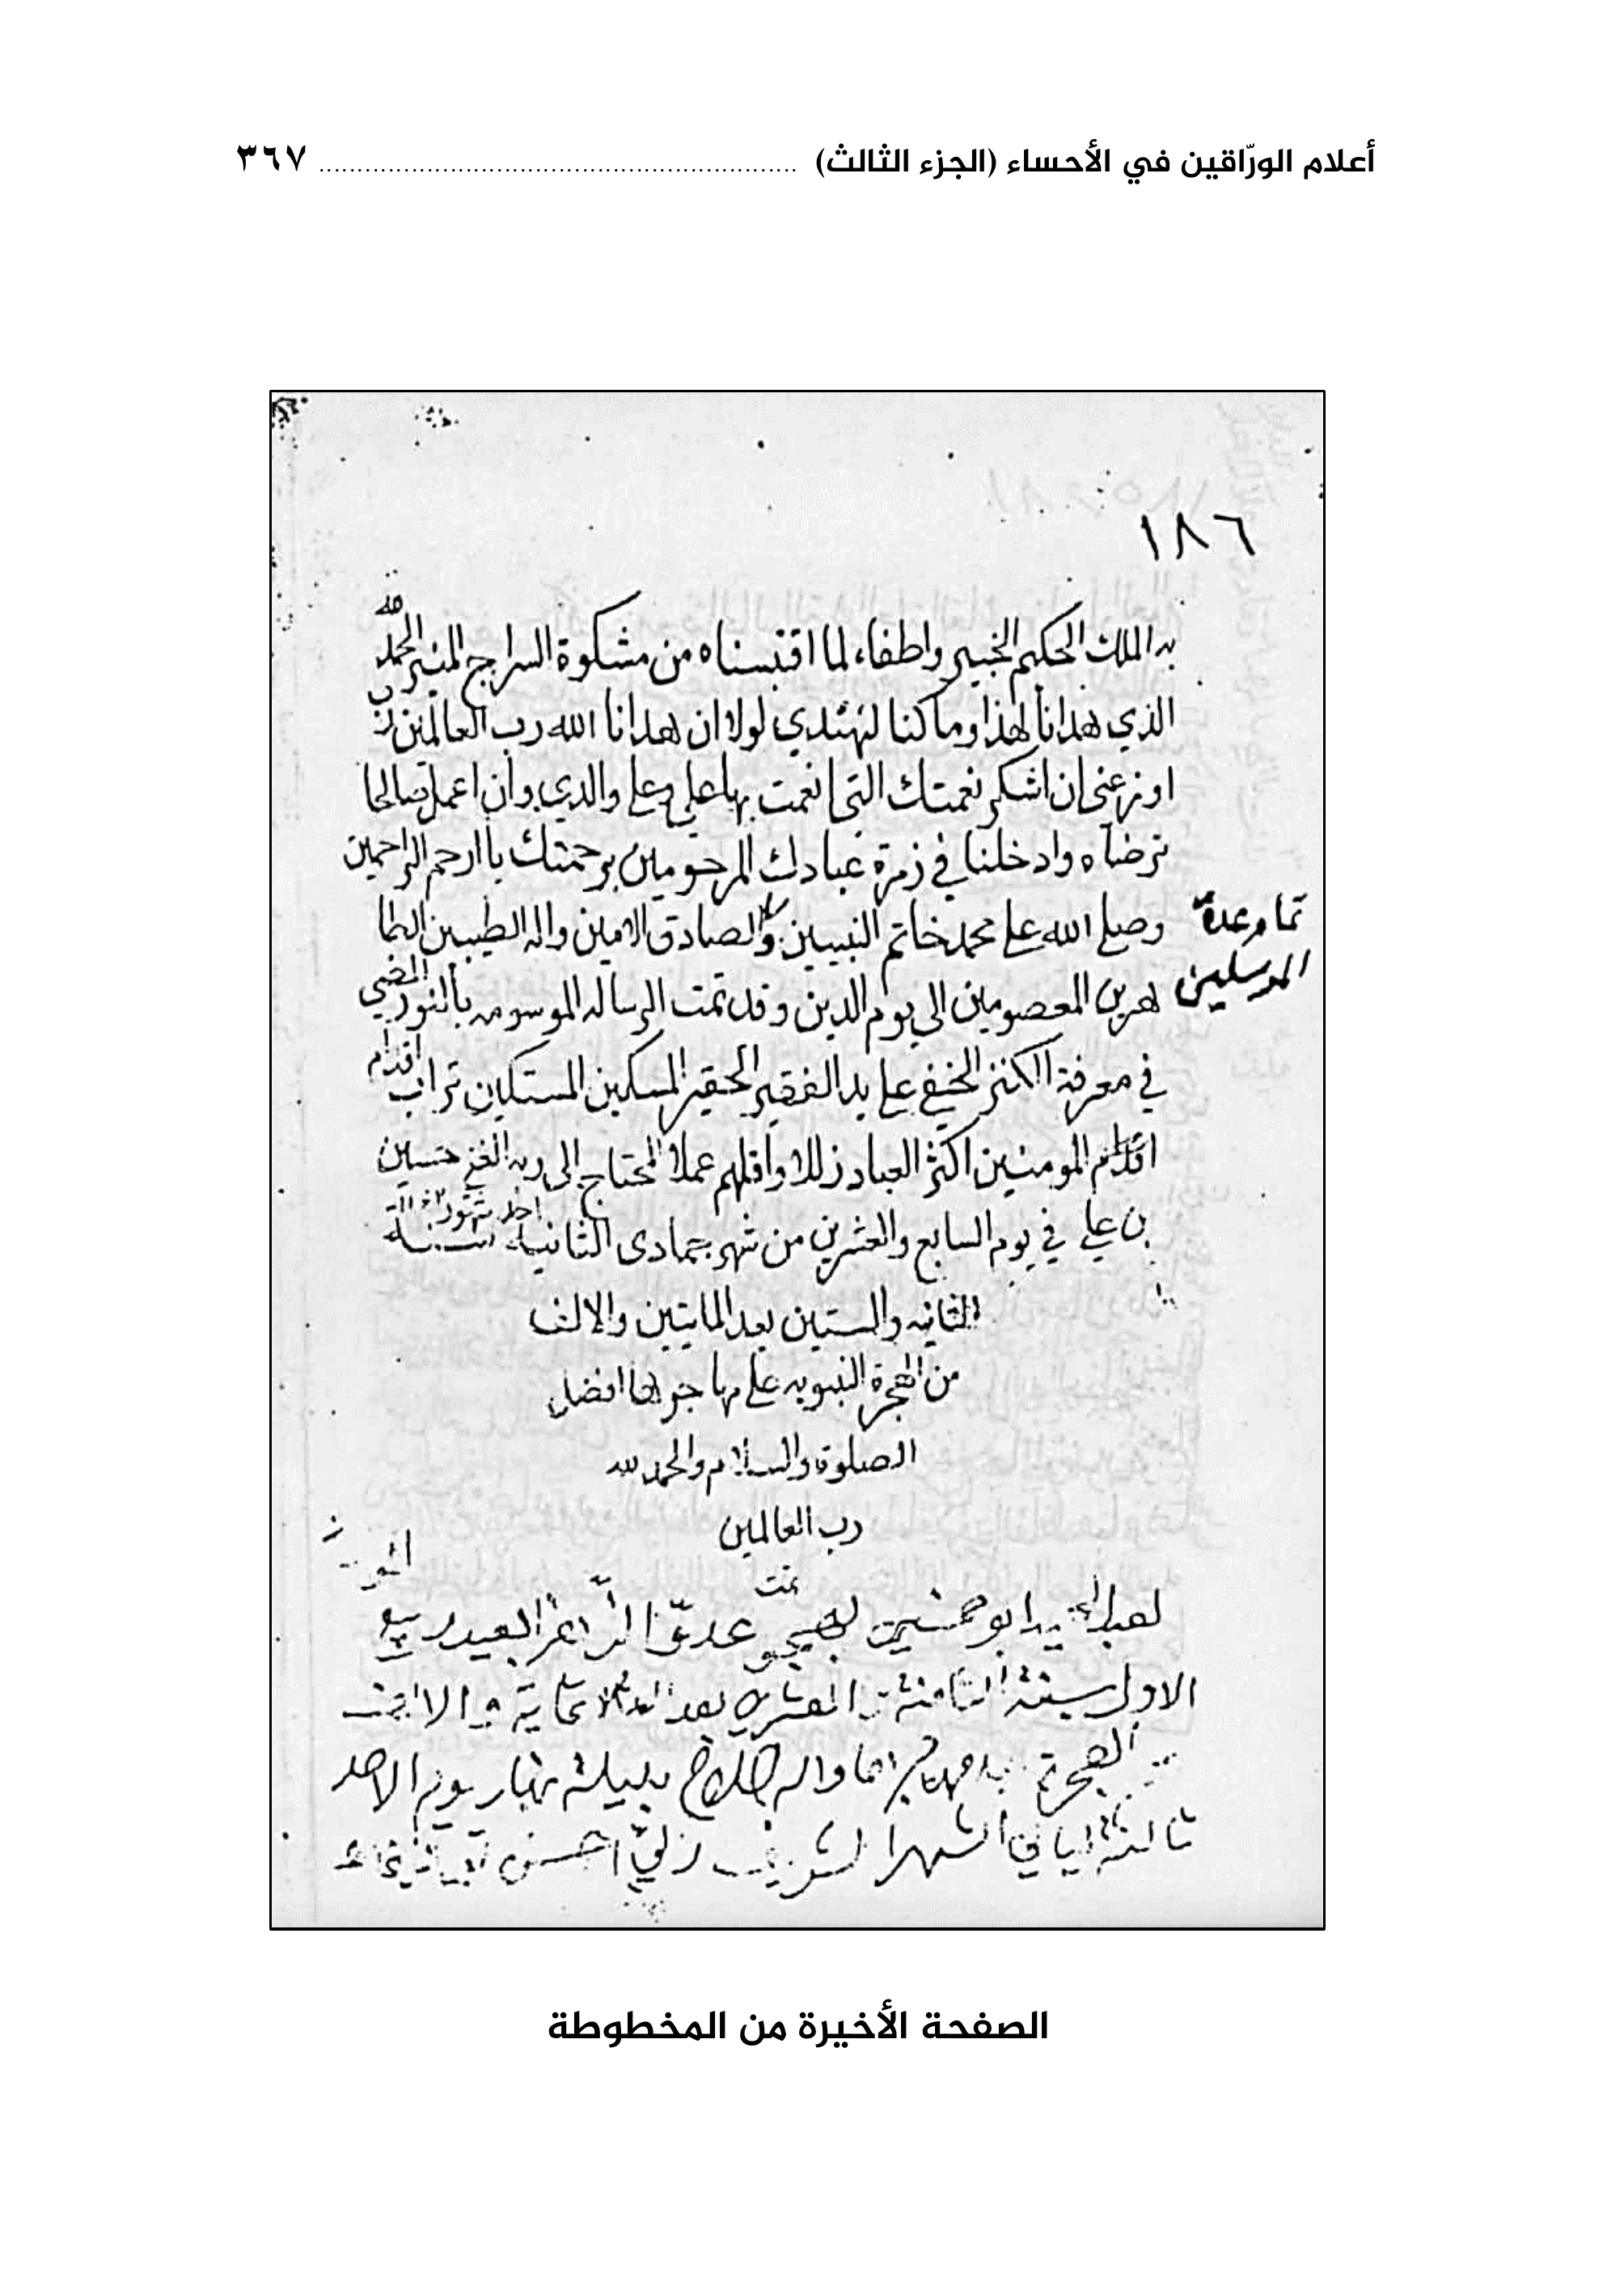 أعلام الورّاقين في الأحساء (الجزء الثالث) ............................................................ ٣٦٧
١٨٦
به الملك الحكيم الخبير واطفاء لما اقتبسناه من مشكوة السراج المنير الحمد لله
الذي هدانا لهذا وما كنا لنهتدي لولا ان هدانا الله رب العالمين رب
اوزعني ان اشكر نعمتك التي انعمت بها علي وعلى والدي وان اعمل صالحا
ترضاه وادخلنا في زمرة عبادك المرحومين برحمتك يا ارحم الراحمين
وصلى الله على محمد خاتم النبيين والصادق الامين واله الطيبين الطا
تمام عدة
المرسلين
هرين المعصومين الى يوم الدين وقد تمت الرساله الموسومه بالنور المضي
في معرفة الكنز الخفي على يد الفقير الحقير المسكين المستكين تراب اقدام
اقدام المومنين اكثر العباد زللا واقلهم عملا المحتاج الى ربه الغني حسين
بن علي في يوم السابع والعشرين من شهر جمادى الثانية
الثانيه والستين بعد المايتين والالف
من الهجرة النبويه على مهاجرها افضل
الصلوة والسلام والحمد لله
رب العالمين
تمت
ربيع
الاول سنة الثامنة العشرين بعد والالف
الهجرة يوم الاحد
الشهر الشريف
الصفحة الأخيرة من المخطوطة